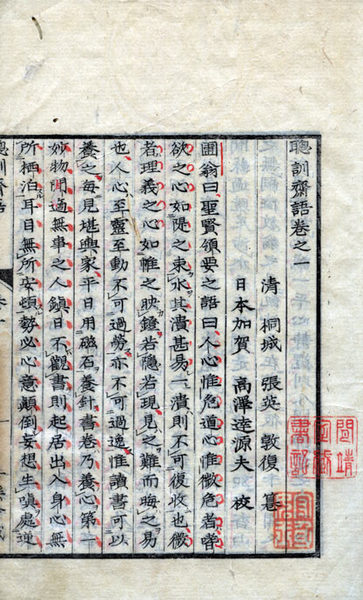 聰訓齋語卷之一
清 桐城 張英 敦復 纂
日本加賀 高澤達源夫 校
圃翁曰聖賢領要之語曰人心惟危道心惟微危者嗜
欲之心如隄之束水其潰甚易一潰則不可復收也微
者理義之心如帷之映鐙若隱若現見之難而晦之易
也人心至靈至動不可過勞亦不可過逸惟讀書可以
養之每見堪輿家平日用磁石養針書卷乃養心第一
妙物閒適無事之人鎮日不觀書則起居出入身心無
所栖泊耳目無所安頓勢必心意顛倒妄想生嗔處逆
聰訓齋語